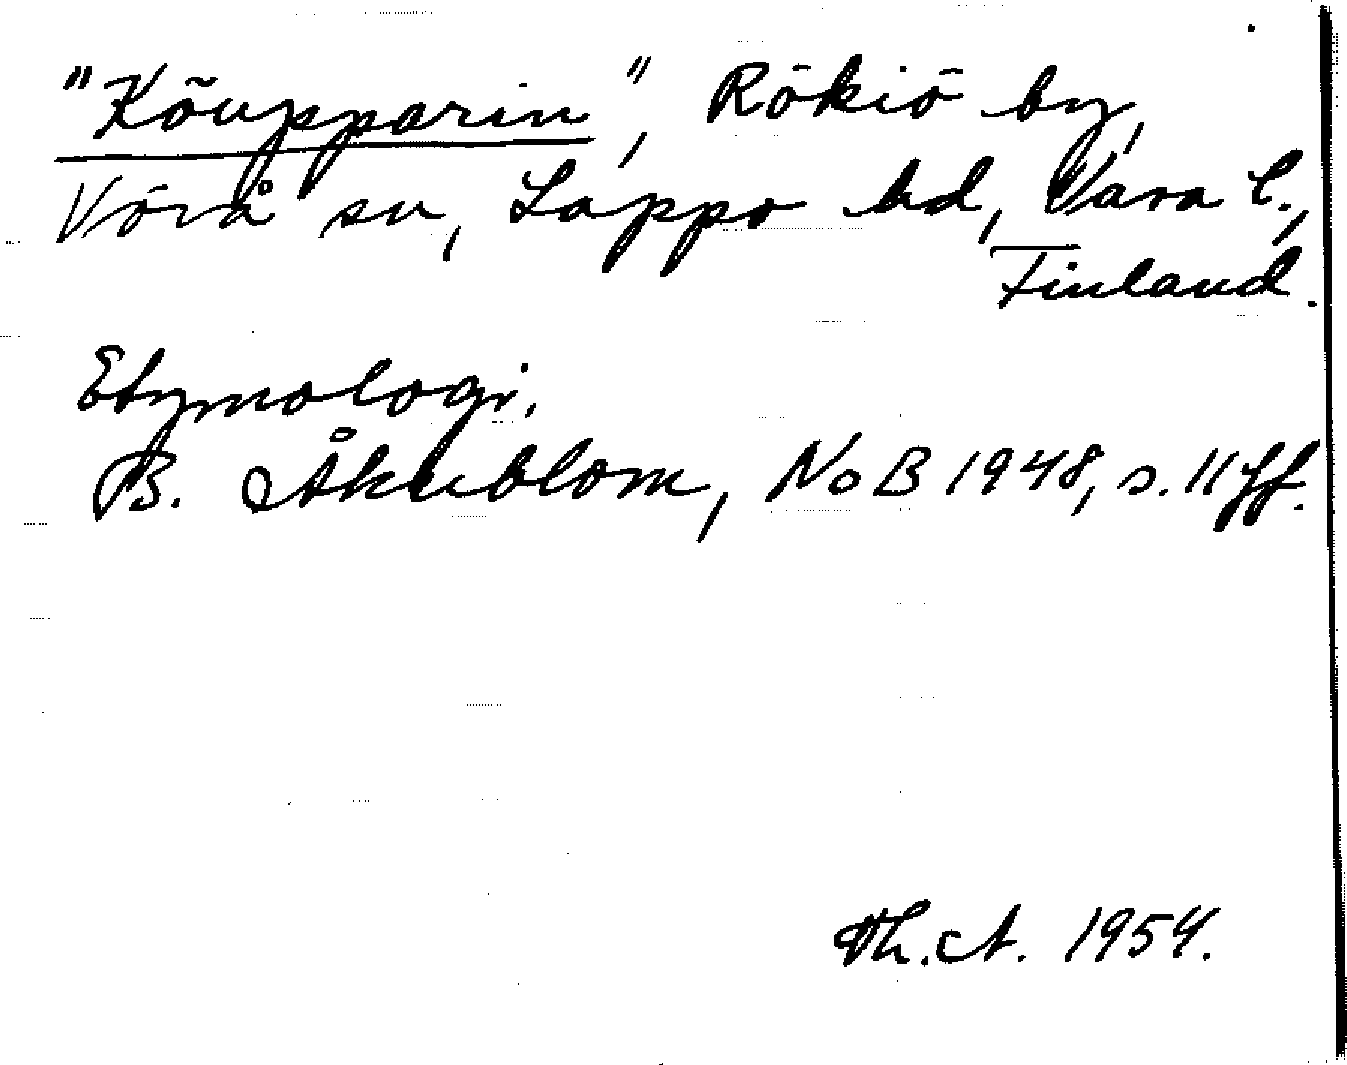 "Kõupparin", Rökiö by,
Vörå sn, Lappo hd, Vasa l.,
Finland.
Etymologi.
B. Åkerblom, NoB 1948, s. 11 ff.
Th. A. 1954.